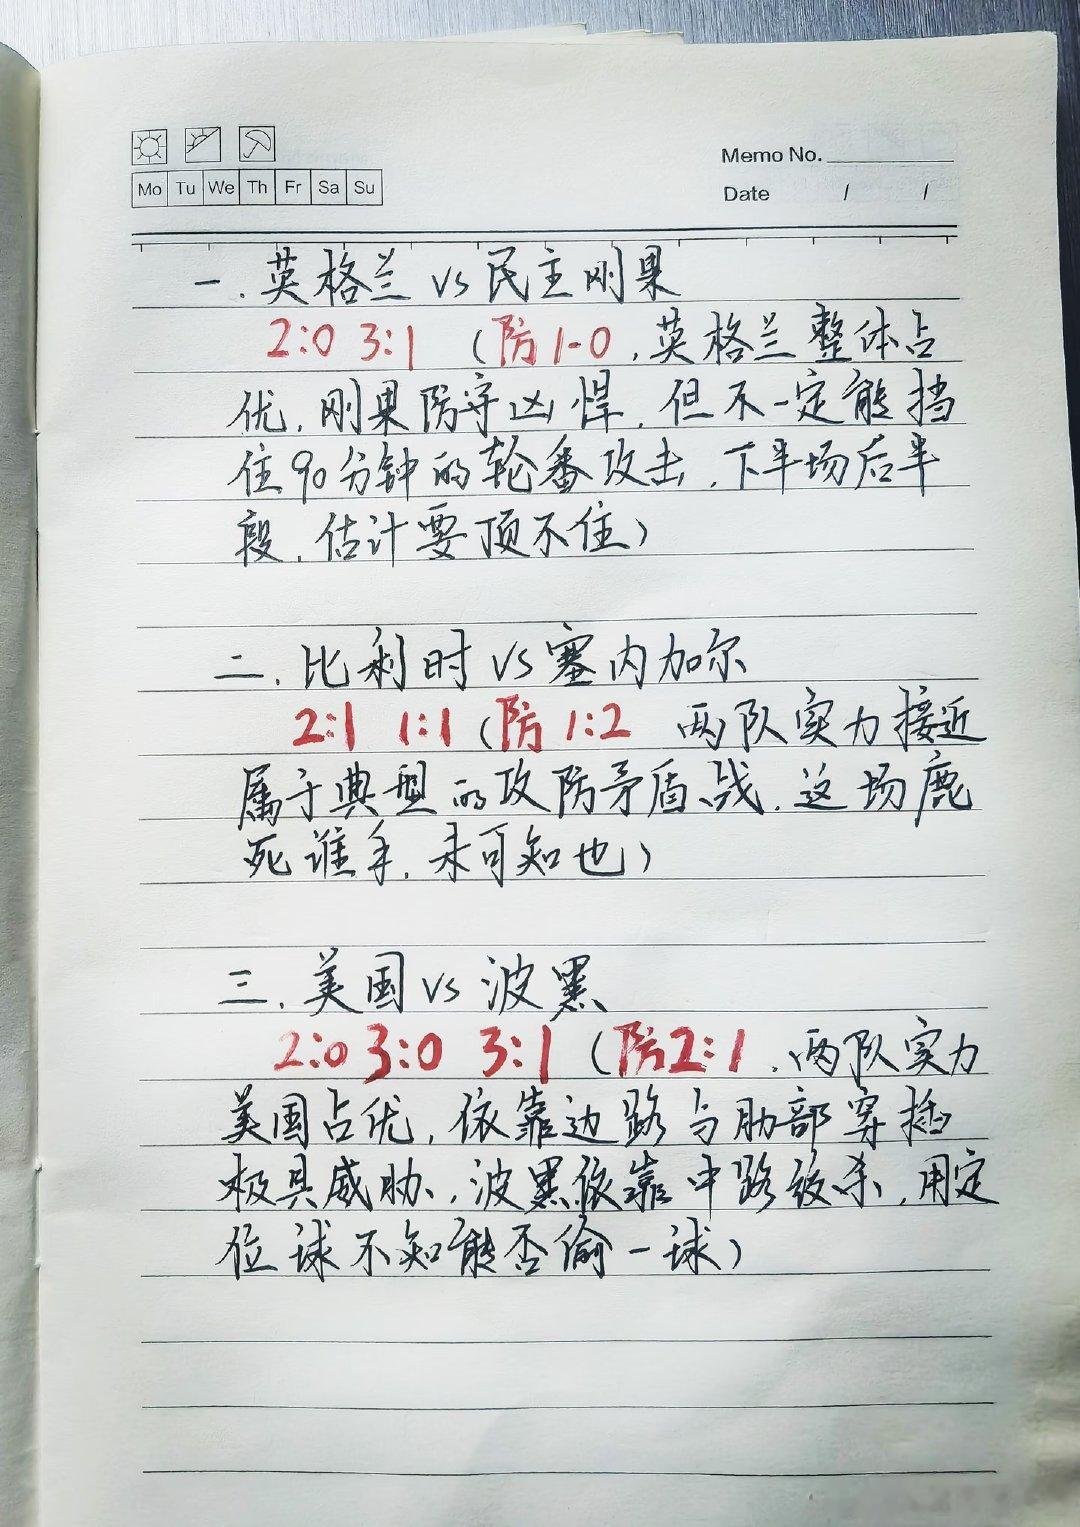 Mo Tu We Th Fr Sa Su
Memo No.
Date / /
一.英格兰 vs 民主刚果
2:0 3:1 (防1-0,英格兰整体占
优,刚果防守凶悍,但不一定能挡
住90分钟的轮番攻击,下半场后半
段,估计要顶不住)
二.比利时 VS 塞内加尔
2:1 1:1 (防1:2 两队实力接近
属于典型的攻防矛盾战,这场鹿
死谁手,未可知也)
三.美国 vs 波黑
2:0 3:0 3:1 (防2:1,两队实力
美国占优,依靠边路与肋部穿插
极具威胁,波黑依靠中路绞杀,用定
位球不知能否偷一球)